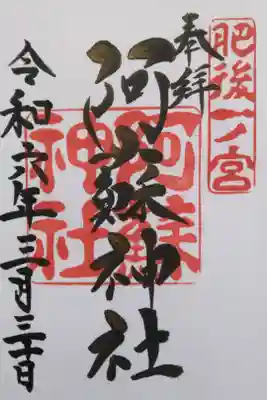 肥後一ノ宮
奉拝
阿蘇神社
阿蘇神社
令和六年三月三十日